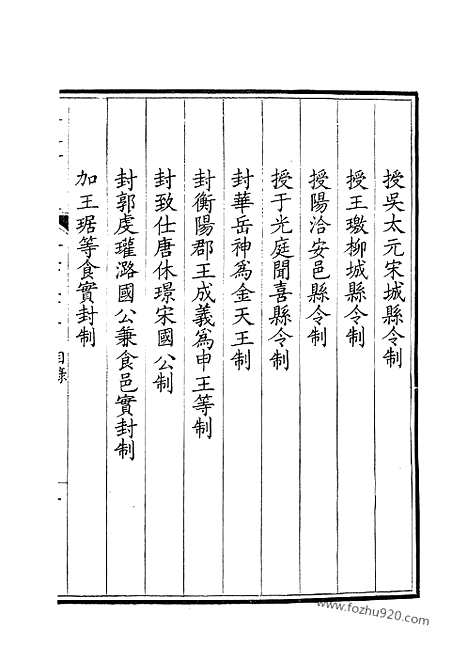 授吳太元宋城縣令制
授王璥柳城縣令制
授陽洽安邑縣令制
授于光庭聞喜縣令制
封華岳神爲金天王制
封衡陽郡王成義爲申王等制
封致仕唐休璟宋國公制
封郭虔瓘潞國公兼食邑實封制
加王琚等食實封制
目錄
www.fozhu920.com